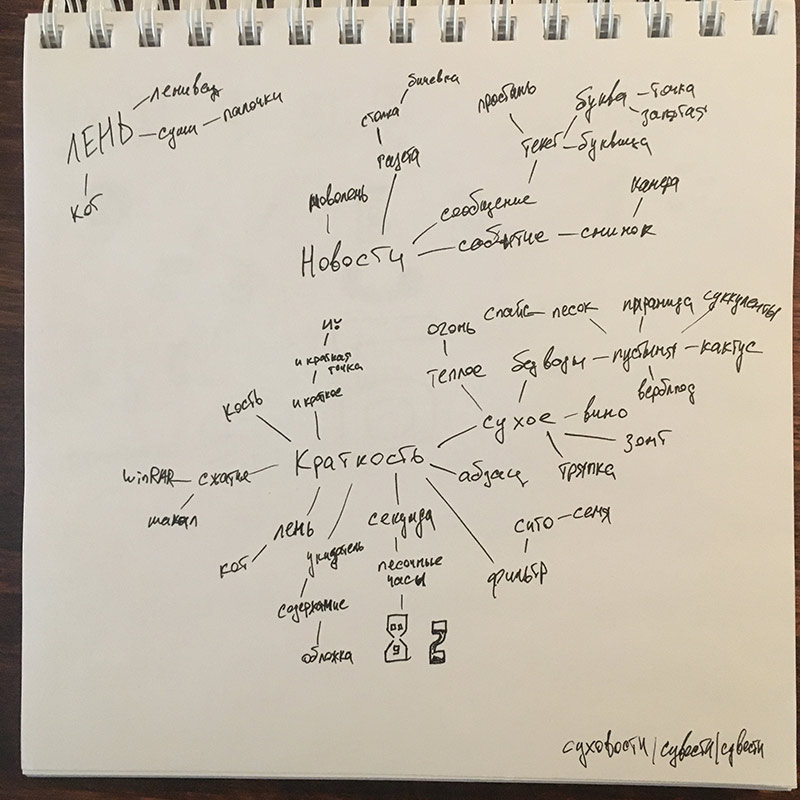 ленивец
ЛЕНЬ
суши
палочки
кот
бичевка
стопка
газета
простынь
буква
точка
запятая
текст
буквица
сообщение
камера
Новости
событие
снимок
й
и краткая
точка
и краткое
кость
огонь
теплое
спайс
песок
пирамида
суккуленты
без воды
пустыня
кактус
верблюд
сухое
вино
зонт
тряпка
Краткость
абзац
winRAR
сжатие
шакал
лень
кот
указатель
содержание
обложка
секунда
песочные
часы
сито
семя
фильтр
суховости/сувести/свести